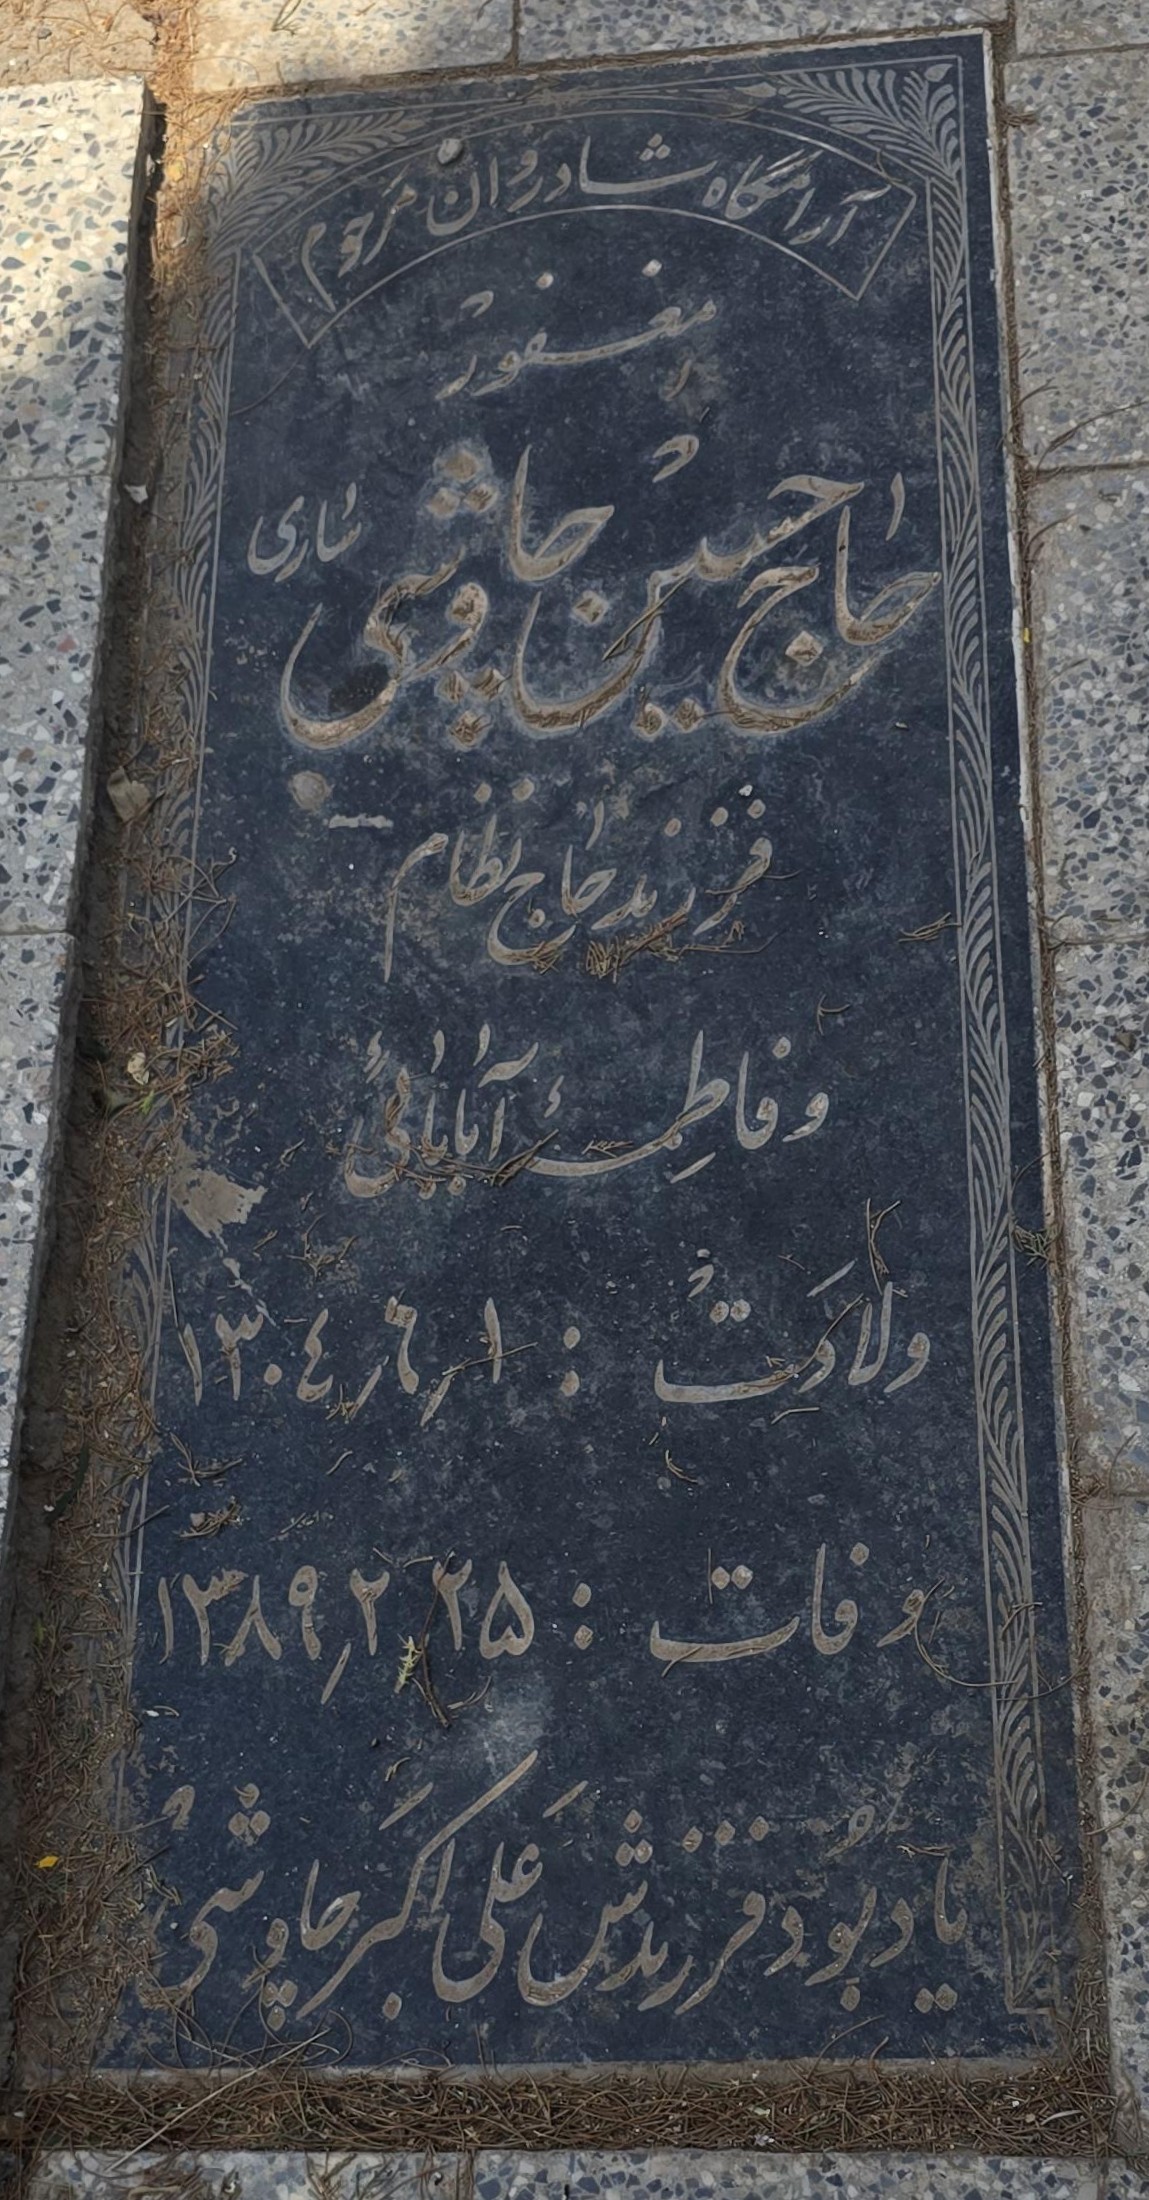 آرامگاه شادروان مرحوم
مغفور
حاج حسین چاوشی ساری
فرزند حاج نظام
و فاطمهٔ آبابائی
ولادت : ۱ر۶ر۱۳۰۴
وفات : ۲۵ر۲ر۱۳۸۹
یادبود فرزندش علی اکبر چاوشی